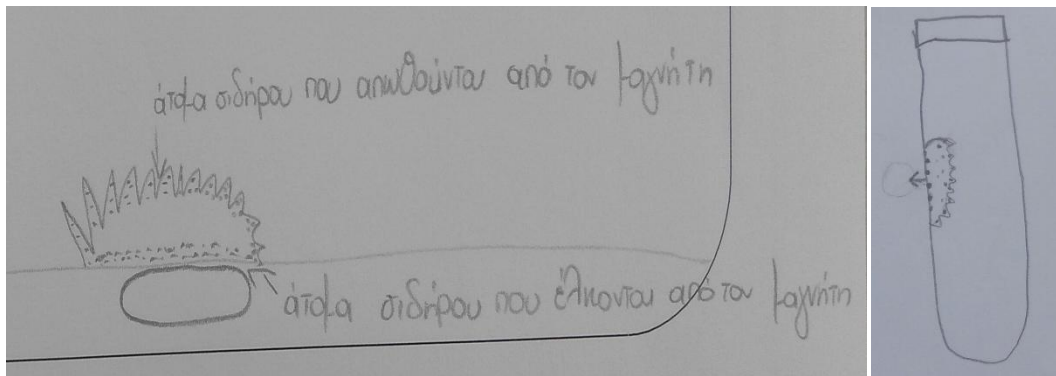 άτομα σιδήρου που απωθούνται από τον μαγνήτη
άτομα σιδήρου που έλκονται από τον μαγνήτη